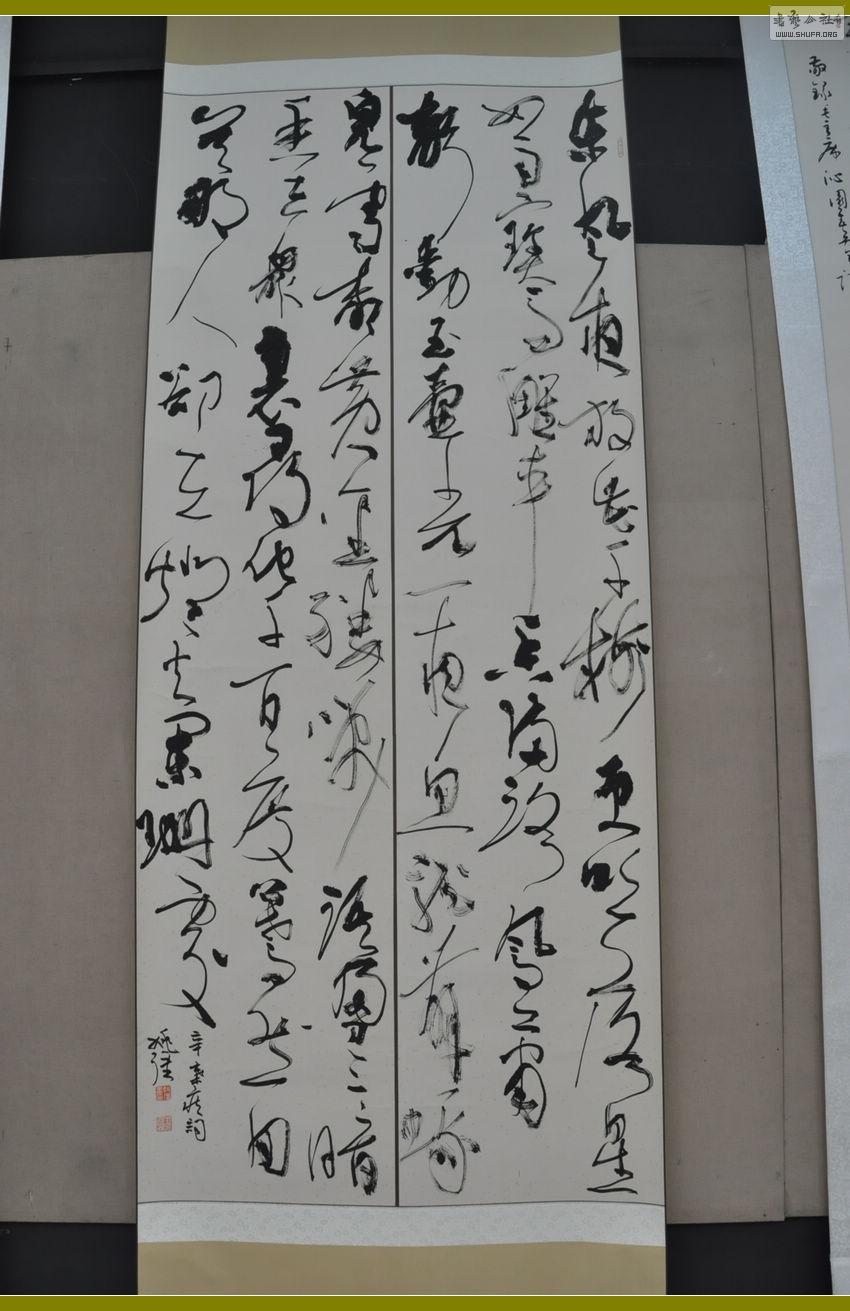 東風夜放花千樹更吹落星
如雨寶馬雕車香滿路鳳簫
聲動玉壺光一夜魚龍舞蛾
兒雪柳黃金縷笑語盈盈暗
香去眾裏尋他千百度驀然回
首那人卻在燈火闌珊處
辛棄疾詞
敬錄毛主席沁園春
WWW.SHUFA.ORG